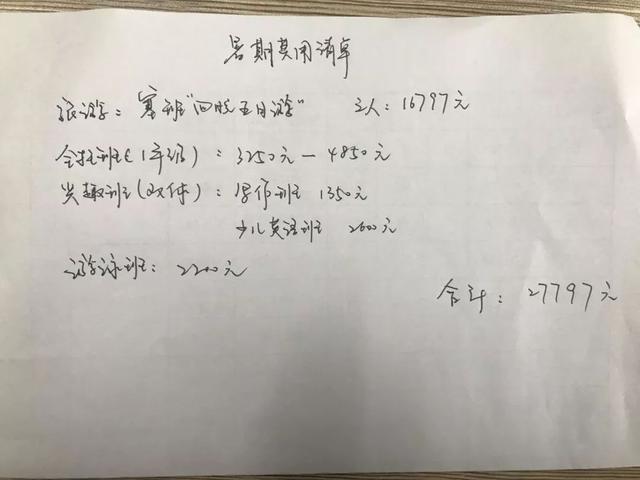 暑期费用清单
旅游：塞班“四晚五日游” 三人：16797元
全托班（1年级）：3250元—4850元
兴趣班（双休）：写作班 1350元
少儿英语班 2600元
游泳班：2200元
合计：27797元